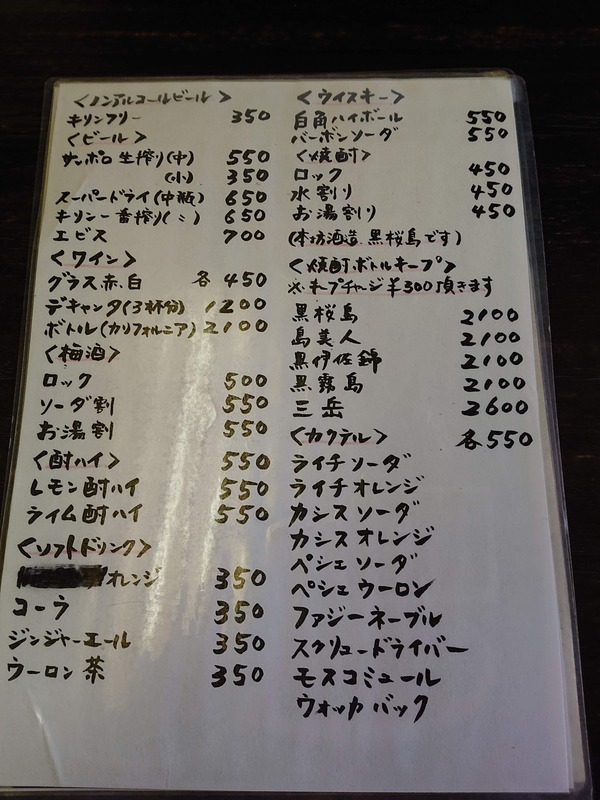 <ノンアルコールビール>
キリンフリー 350
<ビール>
サッポロ生搾り(中) 550
(小) 350
スーパードライ(中瓶) 650
キリン一番搾り(〃) 650
エビス 700
<ワイン>
グラス.赤.白 各 450
デキャンタ(3杯分) 1200
ボトル(カリフォルニア) 2100
<梅酒>
ロック 500
ソーダ割 550
お湯割 550
<酎ハイ> 550
レモン酎ハイ 550
ライム酎ハイ 550
<ソフトドリンク>
オレンジ 350
コーラ 350
ジンジャーエール 350
ウーロン茶 350
<ウイスキー>
白角ハイボール 550
バーボンソーダ 550
<焼酎>
ロック 450
水割り 450
お湯割り 450
(本坊酒造.黒桜島です)
<焼酎.ボトルキープ>
※.キープチャージ¥300頂きます
黒桜島 2100
島美人 2100
黒伊佐錦 2100
黒霧島 2100
三岳 2600
<カクテル> 各550
ライチソーダ
ライチオレンジ
カシスソーダ
カシスオレンジ
ペシェソーダ
ペシェウーロン
ファジーネーブル
スクリュードライバー
モスコミュール
ウォッカバック